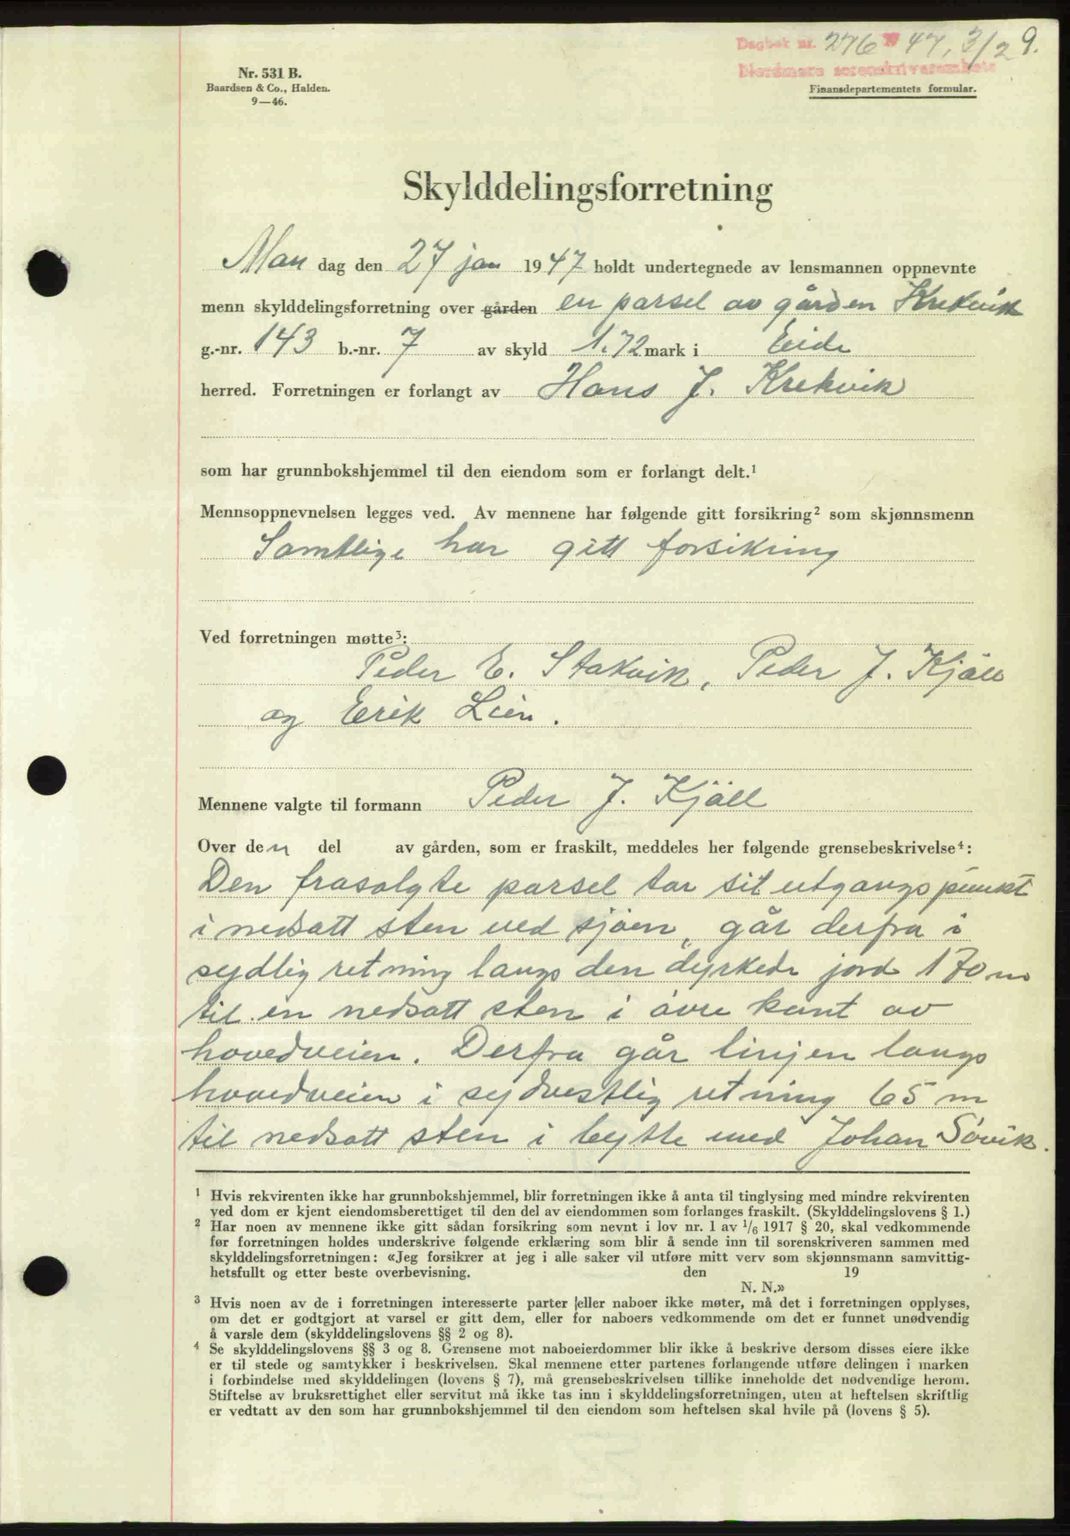 Dagbok nr. 276 1947, 3/2 9.
Nordmøre sorenskriverembete
Nr. 531 B.
Baardsen & Co., Halden.
9—46.
Finansdepartementets formular.
Skylddelingsforretning
Man dag den 27 jan 1947 holdt undertegnede av lensmannen oppnevnte
menn skylddelingsforretning over gården en parsel av gården Krekvik
g.-nr. 143 b.-nr. 7 av skyld 1.72 mark i Eide
herred. Forretningen er forlangt av Hans J. Krekvik
som har grunnbokshjemmel til den eiendom som er forlangt delt.¹
Mennsoppnevnelsen legges ved. Av mennene har følgende gitt forsikring² som skjønnsmenn
Samtlige har gitt forsikring
Ved forretningen møtte³:
Peder E. Stakvik, Peder J. Kjöll
og Erik Lien.
Mennene valgte til formann Peder J. Kjöll
Over den del av gården, som er fraskilt, meddeles her følgende grensebeskrivelse⁴:
Den frasolgte parsel tar sit utgangspunkt
i nedsatt sten ved sjøen, går derfra i
sydlig retning langs den dyrkede jord 170 m
til en nedsatt sten i övre kant av
hovedveien. Derfra går linjen langs
hovedveien i sydvestlig retning 65 m
til nedsatt sten i bytte med Johan Sövik.
¹ Hvis rekvirenten ikke har grunnbokshjemmel, blir forretningen ikke å anta til tinglysing med mindre rekvirenten
ved dom er kjent eiendomsberettiget til den del av eiendommen som forlanges fraskilt. (Skylddelingslovens § 1.)
² Har noen av mennene ikke gitt sådan forsikring som nevnt i lov nr. 1 av 1/6 1917 § 20, skal vedkommende
før forretningen holdes underskrive følgende erklæring som blir å sende inn til sorenskriveren sammen med
skylddelingsforretningen: «Jeg forsikrer at jeg i alle saker vil utføre mitt verv som skjønnsmann samvittig-
hetsfullt og etter beste overbevisning. den 19
N. N.»
³ Hvis noen av de i forretningen interesserte parter eller naboer ikke møter, må det i forretningen opplyses,
om det er godtgjort at varsel er gitt dem, eller for naboers vedkommende om det er funnet unødvendig
å varsle dem (skylddelingslovens §§ 2 og 8).
⁴ Se skylddelingslovens §§ 3 og 8. Grensene mot naboeierdommer blir ikke å beskrive dersom disses eiere ikke
er til stede og samtykker i beskrivelsen. Skal mennene etter partenes forlangende utføre delingen i marken
i forbindelse med skylddelingen (lovens § 7), må grensebeskrivelsen tillike inneholde det nødvendige herom.
Stiftelse av bruksrettighet eller servitut må ikke tas inn i skylddelingsforretningen, uten at heftelsen skriftlig
er vedtatt av den som har grunnbokshjemmel til den eiendom som heftelsen skal hvile på (lovens § 5).